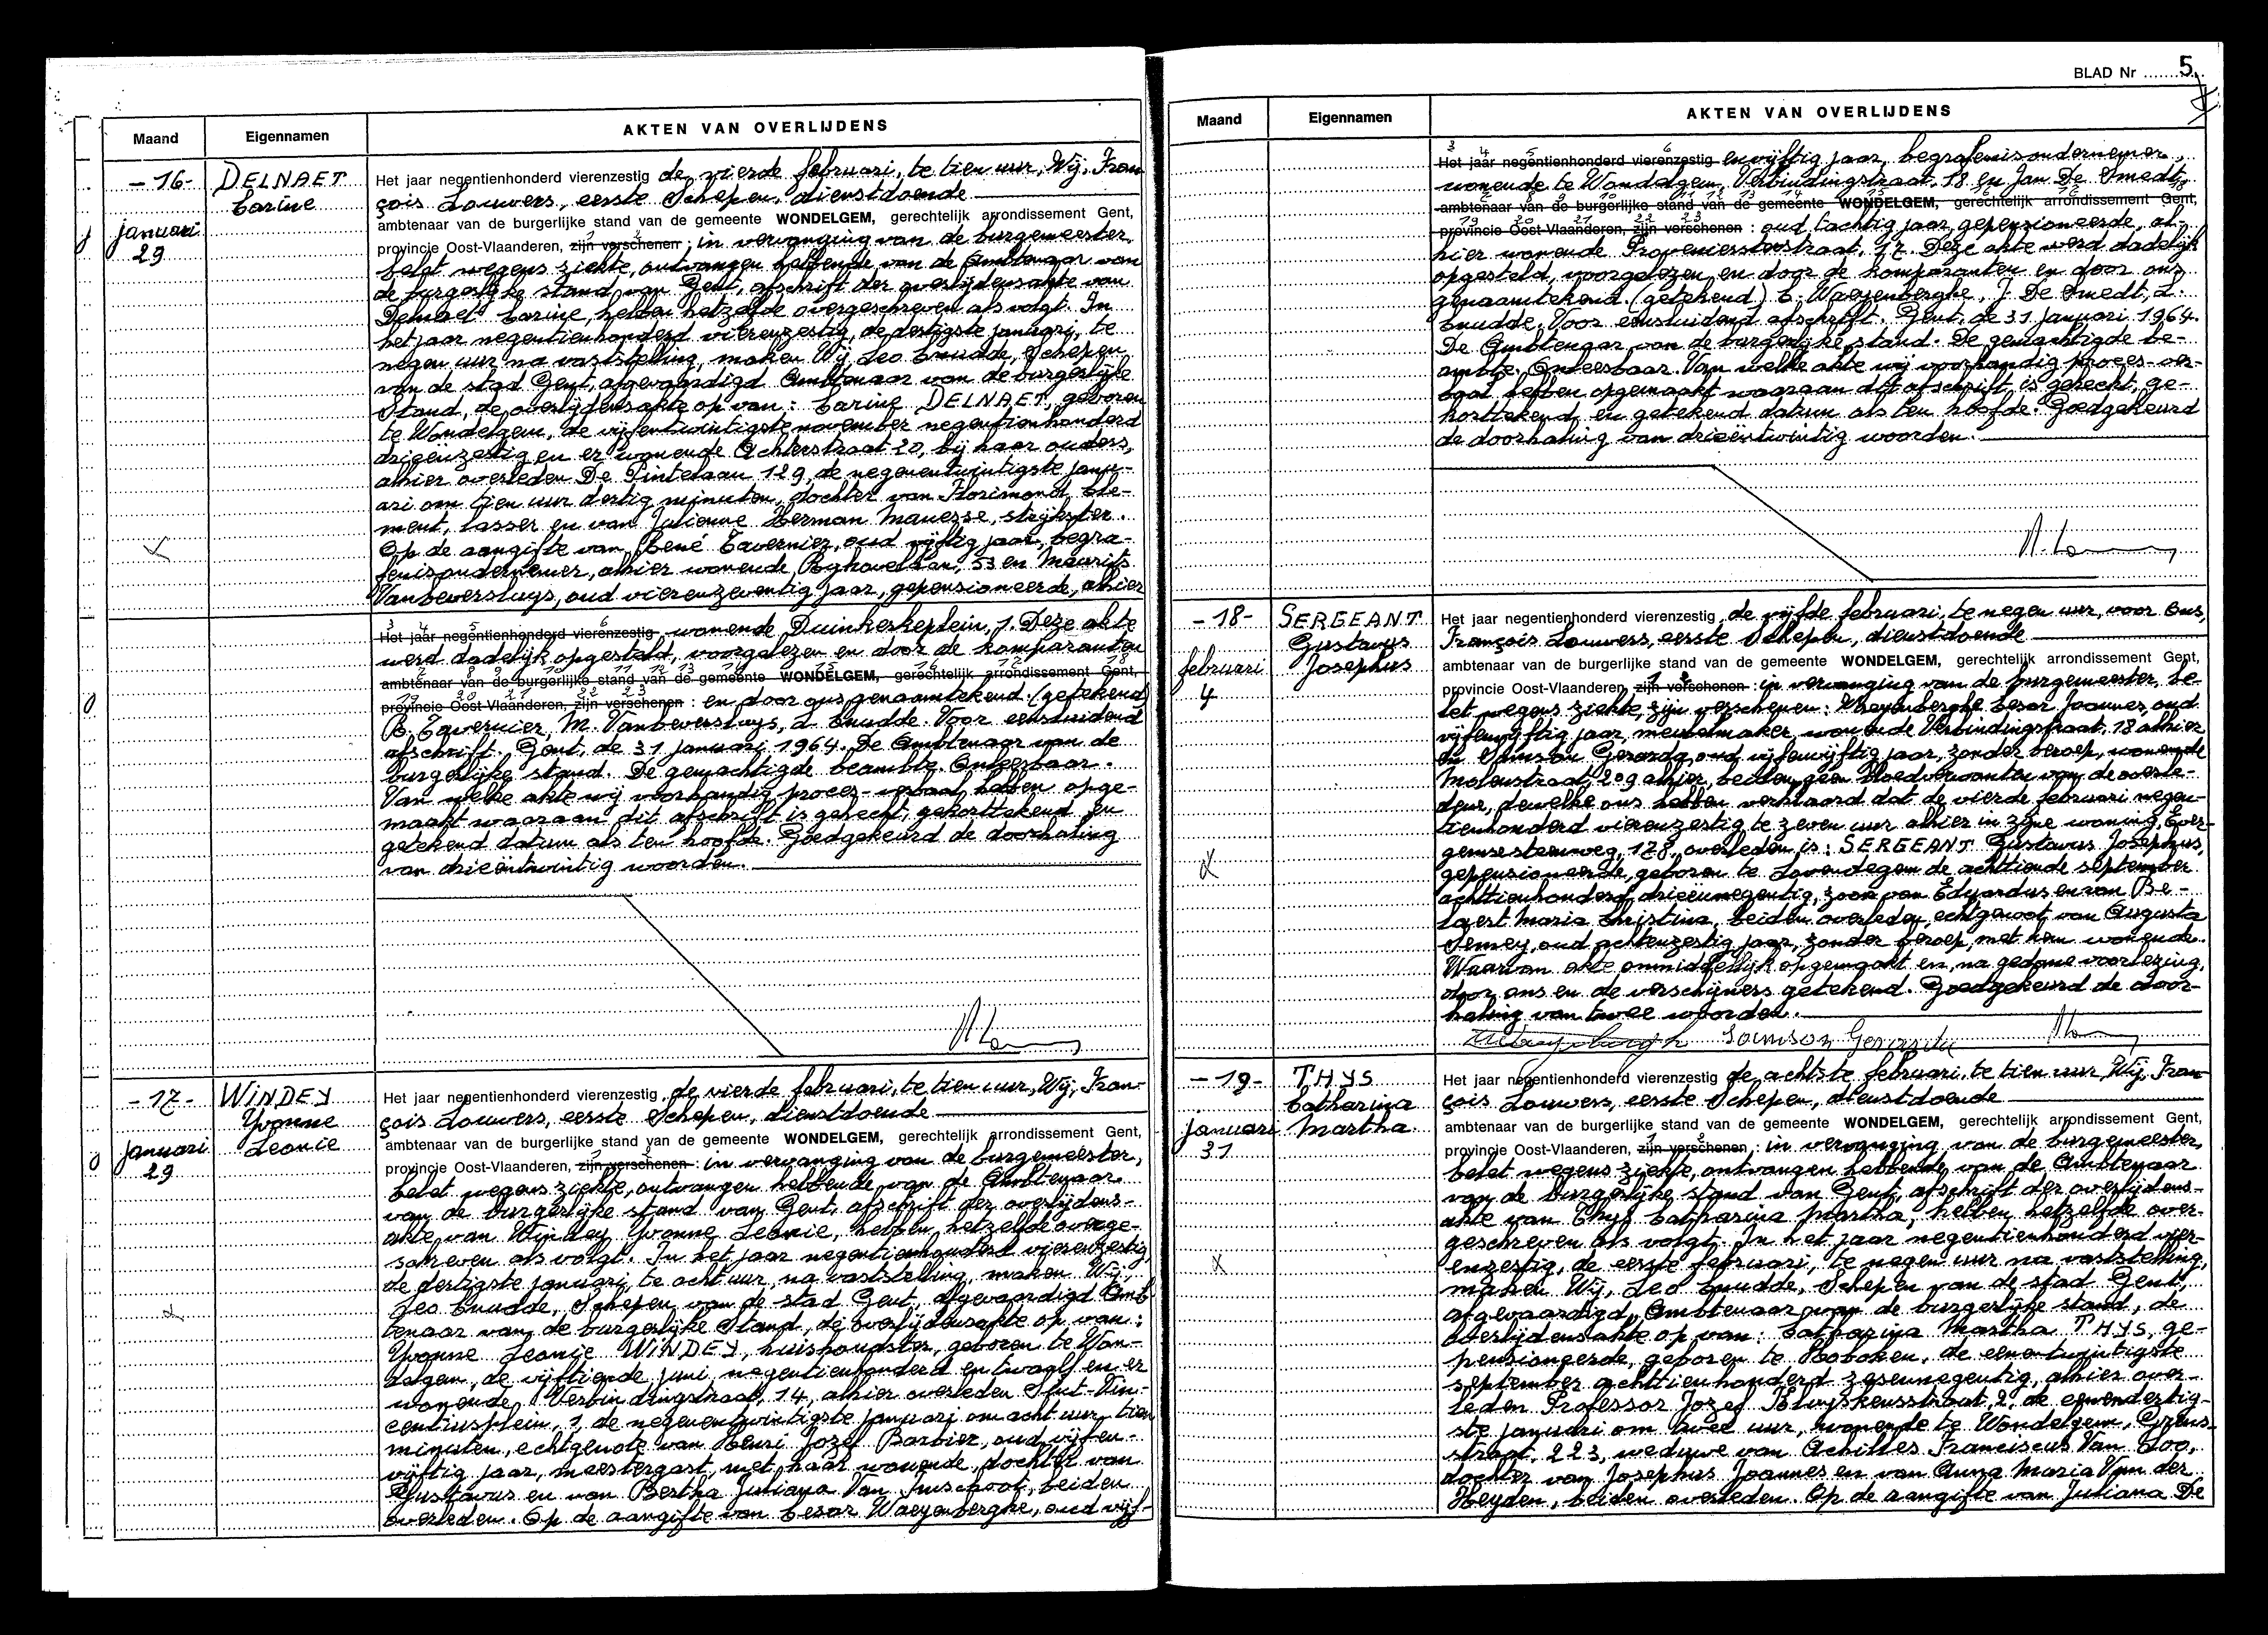 Maand Eigennamen AKTEN VAN OVERLIJDENS
-16- DELNAET Carine
januari 29
Het jaar negentienhonderd vierenzestig de vierde februari, te tien uur, Wij, Fran
çois Louwers, eerste Schepen, dienstdoende
ambtenaar van de burgerlijke stand van de gemeente WONDELGEM, gerechtelijk arrondissement Gent,
provincie Oost-Vlaanderen, zijn verschenen : in vervanging van de burgemeester
belet wegens ziekte, ontvangen hebbende van de Ambtenaar van
de burgerlijke stand van Gent, afschrift der overlijdensakte van
Delnaet Carine, hebben hetzelfde overgeschreven als volgt. In
het jaar negentienhonderd vierenzestig, de dertigste januari, te
negen uur na vaststelling, maken Wij Leo Cnudde, Schepen
van de stad Gent, afgevaardigd Ambtenaar van de burgerlijke
Stand, de overlijdensakte op van: Carine DELNAET, geboren
te Wondelgem, de vijfentwintigste november negentienhonderd
drieënzestig en er wonende Achterstraat 20, bij haar ouders,
alhier overleden De Pintelaan 129, de negenentwintigste janu-
ari om tien uur dertig minuten, dochter van Florimond Cle-
ment, lasser en van Julienne Herman Manesse, strijkster.
Op de aangifte van René Tavernier, oud vijftig jaar, begra-
fenisondernemer, alhier wonende 53 en Maurits
Vanbeversluys, oud vierenzeventig jaar, gepensioneerde, alhier
3 4 5 6
Het jaar negentienhonderd vierenzestig wonende Duinkerkeplein, 1. Deze akte
werd dadelijk opgesteld, voorgelezen en door de komparanten
ambtenaar van de burgerlijke stand van de gemeente WONDELGEM, gerechtelijk arrondissement Gent,
19 20 21 22 23
provincie Oost-Vlaanderen, zijn verschenen : en door ons genaamtekend. (getekend
R. Tavernier, M. Vanbeversluys, L. Cnudde. Voor eensluidend
afschrift. Gent, de 31 januari 1964. De Ambtenaar van de
burgerlijke stand. De gemachtigde beambte. Onleesbaar.
Van welke akte wij voorhandig proces-verbaal hebben opge-
maakt waaraan dit afschrift is gehecht, gekorttekend en
getekend datum als ten hoofde. Goedgekeurd de doorhaling
van drieëntwintig woorden.
-17- WINDEY Yvonne Leonie
januari 29
Het jaar negentienhonderd vierenzestig de vierde februari, te tien uur, Wij, Fran-
çois Louwers, eerste Schepen, dienstdoende
ambtenaar van de burgerlijke stand van de gemeente WONDELGEM, gerechtelijk arrondissement Gent,
provincie Oost-Vlaanderen, zijn verschenen : in vervanging van de burgemeester,
belet wegens ziekte, ontvangen hebbende van de Ambtenaar
van de burgerlijke stand van Gent, afschrift der overlijdens-
akte van Windey Yvonne Leonie, hebben hetzelfde overge-
schreven als volgt. In het jaar negentienhonderd vierenzestig
de dertigste januari, te acht uur, na vaststelling, maken Wij,
Leo Cnudde, Schepen van de stad Gent, afgevaardigd Amb
tenaar van de burgerlijke Stand, de overlijdensakte op van:
Yvonne Leonie WINDEY, huishoudster, geboren te Won-
delgem, de vijftiende juni, negentienhonderd en twaalf en er
wonende, Verbindingstraat, 14, alhier overleden Sint-Vin-
centiusplein, 1, de negenentwintigste januari om acht uur tien
minuten, echtgenote van Henri Jozef Barbier, oud vijfen-
vijftig jaar, meestergast, met haar wonende, dochter van
Gustavus en van Bertha Juliana Van Imschoot, beiden
overleden. Op de aangifte van Cesar Waeyenberghe, oud vijf-
BLAD Nr 5
Maand Eigennamen AKTEN VAN OVERLIJDENS
3 4 5 6
Het jaar negentienhonderd vierenzestig envijftig jaar, begrafenisondernemer,
wonende te Wondelgem, Verbindingstraat, 18 en Jan De Smedt,
ambtenaar van de burgerlijke stand van de gemeente WONDELGEM, gerechtelijk arrondissement Gent,
19 20 21 22 23
provincie Oost-Vlaanderen, zijn verschenen : oud tachtig jaar, gepensioneerde, al-
hier wonende Proveniersterstraat, 17. Deze akte werd dadelijk
opgesteld, voorgelezen en door de komparanten en door ons
genaamtekend. (getekend) C. Waeyenberghe, J. De Smedt, L.
Cnudde. Voor eensluidend afschrift. Gent, de 31 januari 1964.
De Ambtenaar van de burgerlijke stand. De gemachtigde be-
ambte. Onleesbaar. Van welke akte wij voorhandig proces-ver-
baal hebben opgemaakt waaraan dit afschrift is gehecht, ge-
korttekend en getekend datum als ten hoofde. Goedgekeurd
de doorhaling van drieëntwintig woorden.
-18- SERGEANT Gustavus Josephus
februari 4
Het jaar negentienhonderd vierenzestig de vijfde februari, te negen uur, voor Ons,
François Louwers, eerste Schepen, dienstdoende
ambtenaar van de burgerlijke stand van de gemeente WONDELGEM, gerechtelijk arrondissement Gent,
provincie Oost-Vlaanderen, zijn verschenen : in vervanging van de burgemeester, be-
let wegens ziekte, zijn verschenen: Waeyenberghe Cesar Joannes, oud
vijfenvijftig jaar, meubelmaker, wonende Verbindingstraat, 18 alhier
en Samson Gerarda, oud vijfenvijftig jaar, zonder beroep, wonende
Molenstraat, 209 alhier, beiden geen bloedverwanten van de overle-
dene, dewelke ons hebben verklaard dat de vierde februari negen-
tienhonderd vierenzestig te zeven uur alhier in zijne woning, Ever-
gemsesteenweg, 178, overleden is: SERGEANT Gustavus Josephus,
gepensioneerde, geboren te Lovendegem de achttiende september
achttienhonderd drieënnegentig, zoon van Eduardus en van Be-
laert Maria Christina, beiden overleden, echtgenoot van Augusta
Semey, oud achtenzestig jaar, zonder beroep, met hem wonende.
Waarvan akte onmiddellijk opgemaakt en, na gedane voorlezing,
door ons en de verschijners getekend. Goedgekeurd de door-
haling van twee woorden.
Samson Gerarda
-19- THYS Catharina Martha
januari 31
Het jaar negentienhonderd vierenzestig de achtste februari, te tien uur, Wij, Fran
çois Louwers, eerste Schepen, dienstdoende
ambtenaar van de burgerlijke stand van de gemeente WONDELGEM, gerechtelijk arrondissement Gent,
provincie Oost-Vlaanderen, zijn verschenen : in vervanging van de burgemeester,
belet wegens ziekte, ontvangen hebbende van de Ambtenaar
van de burgerlijke stand van Gent, afschrift der overlijdens-
akte van Thys Catharina Martha, hebben hetzelfde over-
geschreven als volgt. In het jaar negentienhonderd vier-
enzestig, de eerste februari, te negen uur na vaststelling,
maken Wij, Leo Cnudde, Schepen van de stad Gent,
afgevaardigd Ambtenaar van de burgerlijke stand, de
overlijdensakte op van: Catharina Martha THYS, ge-
pensioneerde, geboren te Hoboken, de eenentwintigste
september achttienhonderd zesennegentig, alhier over-
leden Professor Jozef Kluyskensstraat, 2, de eenendertig-
ste januari om twee uur, wonende te Wondelgem,
straat, 223, weduwe van Achilles Franciscus Van Loo,
dochter van Josephus Joannes en van Anna Maria Van der
Heyden, beiden overleden. Op de aangifte van Juliana De